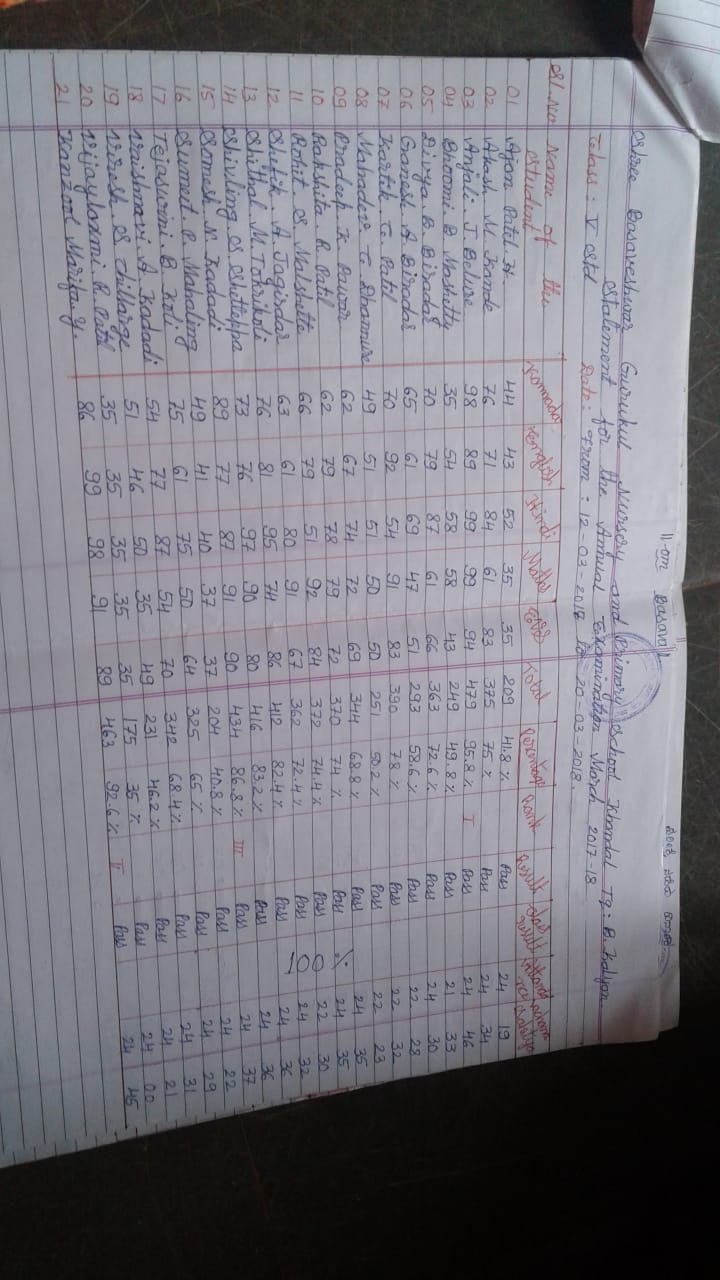 Shree Basaveshwar Gurukul Nursery and Primary School Khandal Tq: B. Kalyan
Statement for the Annual Examination March 2017-18
Class: V Std Date: From: 12-03-2018 to 20-03-2018.
Sl.No. Name of the Student Kannada English Hindi Maths Total Percentage Rank Result
01 Patil H 44 43 52 35 35 209 41.8 % Pass 24 19
02 Akash M Kamde 76 71 84 61 83 375 75 % Pass 24 34
03 Anjali J Beluse 98 89 99 99 94 479 95.8 % I Pass 24 46
04 Bhoomi B Moshetty 35 54 58 58 43 249 49.8 % Pass 21 33
05 Divya B Biradar 70 79 87 61 66 363 72.6 % Pass 24 30
06 Ganesh A Biradar 65 61 69 47 51 293 58.6 % Pass 22 28
07 Kartik G Patil 70 92 54 91 83 390 78 % Pass 22 32
08 Mahadev G Dhamure 49 51 51 50 50 251 50.2 % Pass 22 23
09 Pradeep K Pawar 62 67 74 72 69 344 68.8 % Pass 24 35
10 Rakshita R Patil 62 79 78 79 72 370 74 % Pass 24 35
11 Rohit S Malshette 66 79 51 92 84 372 74.4 % Pass 22 30
12 A Jagirdar 63 61 80 91 67 362 72.4 % Pass 100 % 24 32
13 Shithal M Tokrikoli 76 81 95 74 86 412 82.4 % Pass 24 36
14 Shivling S Shettappa 73 76 97 90 80 416 83.2 % Pass 24 36
15 Somesh N Kadadi 89 77 87 91 90 434 86.8 % III Pass 24 37
16 Sumeet P Mahaling 49 41 40 37 37 204 40.8 % Pass 24 22
17 Tejaswini B Koli 75 61 75 50 64 325 65 % Pass 24 29
18 Vaishnavi A Kadadi 54 77 87 54 70 342 68.4 % Pass 24 31
19 Viresh S 51 46 50 35 49 231 46.2 % Pass 24 21
20 Vijaylaxmi R Patil 35 35 35 35 35 175 35 % Pass 24 00
21 Kanzool Marifa Y. 86 99 98 91 89 463 92.6 % II Pass 24 45